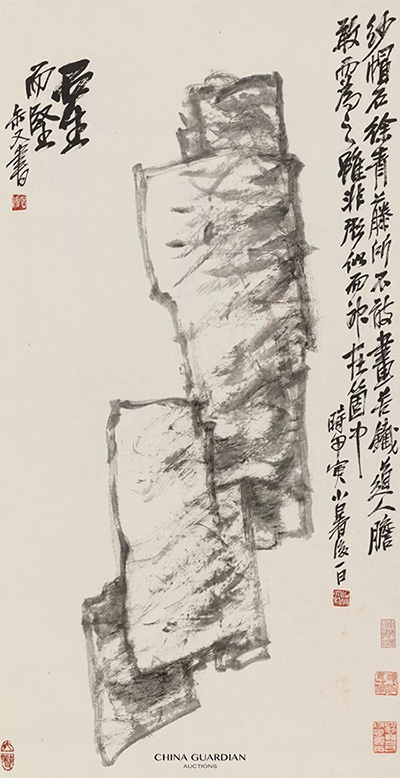 紗帽石徐青藤所不敢畫苦鐵道人膽
敢為之雖非形似而神在箇中
時甲寅小暑後一日
石生
而堅
缶又書
CHINA GUARDIAN
AUCTIONS